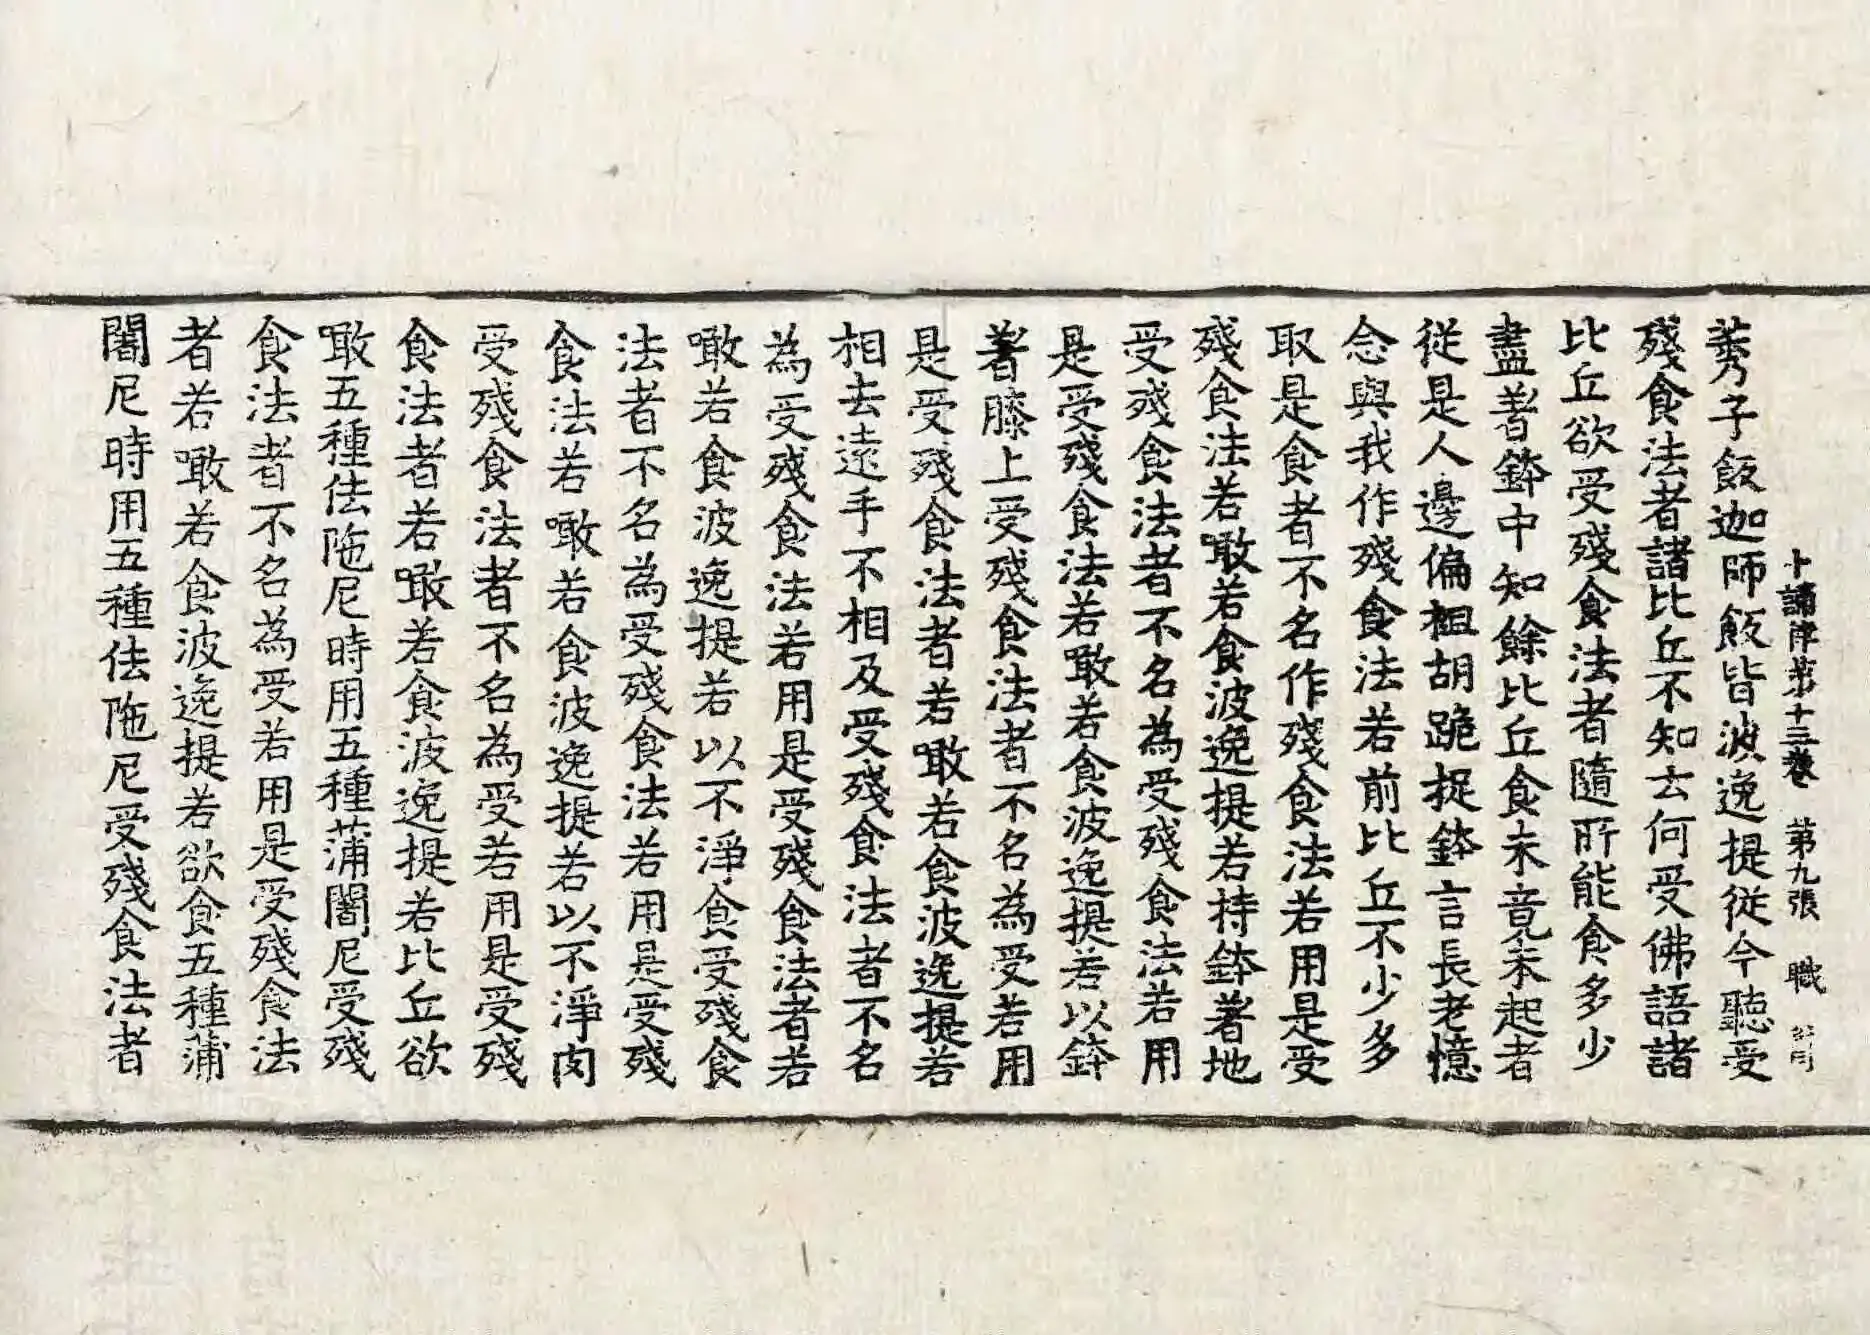 十誦律第十三卷 第九張 職
莠子飯迦師飯皆波逸提從今聽受
殘食法者諸比丘不知云何受佛語諸
比丘欲受殘食法者隨所能食多少
盡著鉢中知餘比丘食未竟未起者
從是人邊偏袒胡跪捉鉢言長老憶
念與我作殘食法若前比丘不少多
取是食者不名作殘食法若用是受
殘食法若噉若食波逸提若持鉢著地
受殘食法者不名為受殘食法若用
是受殘食法若噉若食波逸提若以鉢
著膝上受殘食法者不名為受若用
是受殘食法者若噉若食波逸提若
相去遠手不相及受殘食法者不名
為受殘食法若用是受殘食法者若
噉若食波逸提若以不淨食受殘食
法者不名為受殘食法若用是受殘
食法若噉若食波逸提若以不淨肉
受殘食法者不名為受若用是受殘
食法者若噉若食波逸提若比丘欲
噉五種佉陁尼時用五種蒲闍尼受殘
食法者不名為受若用是受殘食法
者若噉若食波逸提若欲食五種蒲
闍尼時用五種佉陁尼受殘食法者